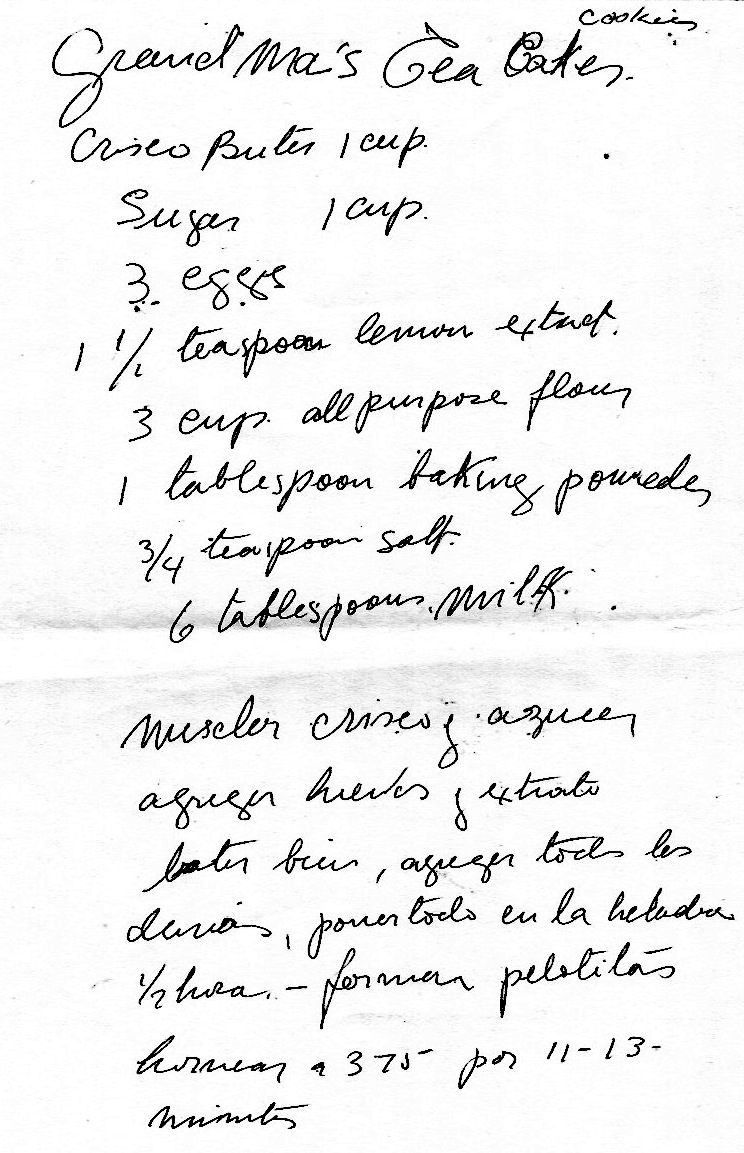 cookies
Grand Ma's Tea Cakes.
Crisco Buter 1 cup.
Sugar 1 cup.
3 eggs
1 1/2 teaspoon lemon extract.
3 cup. all purpose flour
1 tablespoon baking powder
3/4 teaspoon salt.
6 tablespoons milk.
Mesclar crisco y azucar
agregar huevos y extrato
batir bien, agregar todo los
demás, poner todo en la heladera
1/2 hora. - formar pelotitas
hornear a 375 por 11-13-
minutos